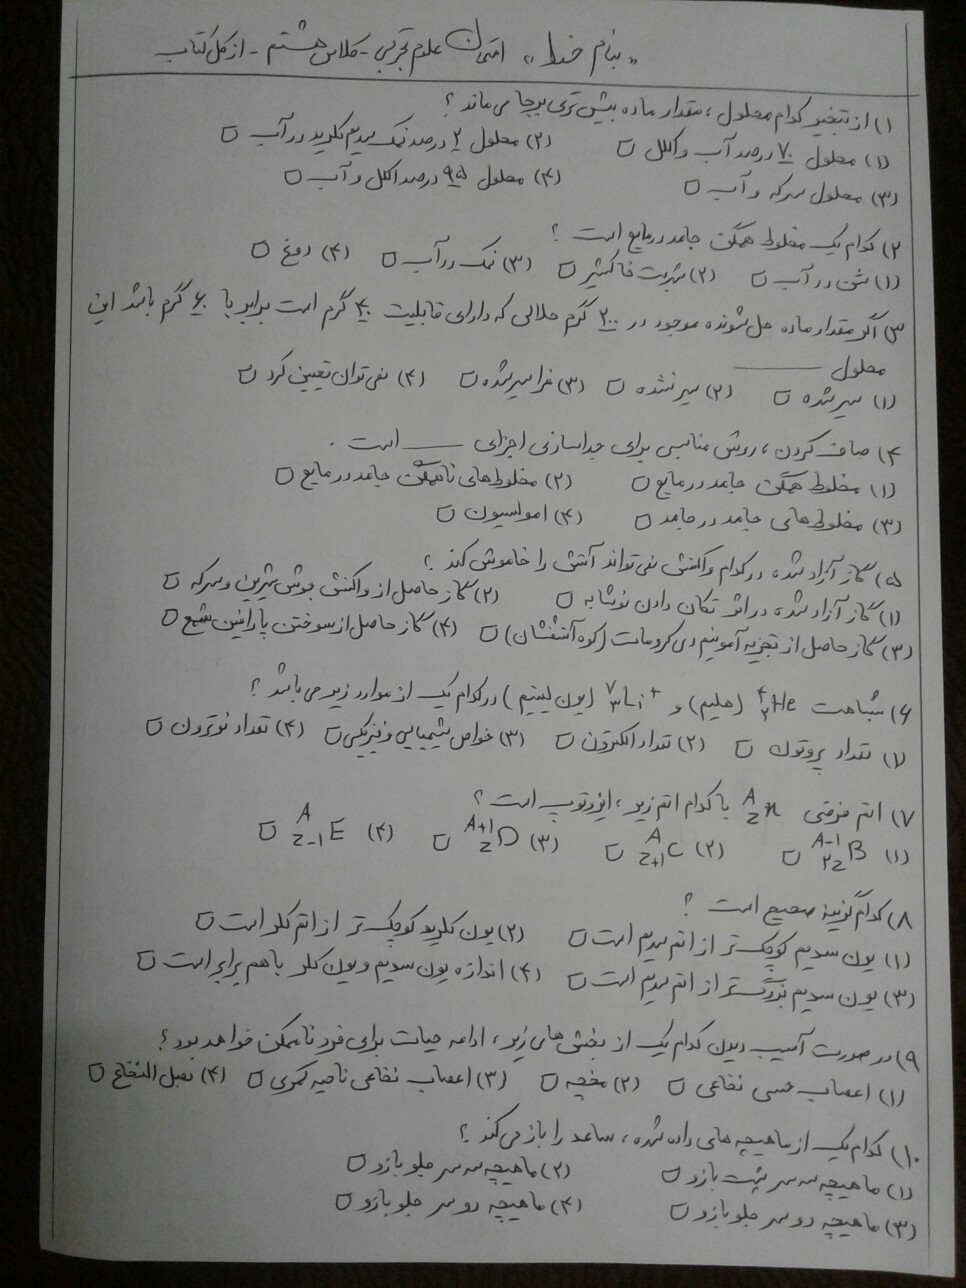 « بنام خدا » امتحان علوم تجربی - کلاس هشتم - از کل کتاب
۱) از تبخیر کدام محلول، مقدار ماده بیش تری برجا می ماند؟
۱) محلول ۷۰ درصد آب و الکل □ ۲) محلول ۲ درصد نمک سدیم کلرید در آب □
۳) محلول سرکه و آب □ ۴) محلول ۹۵ درصد الکل و آب □
۲) کدام یک مخلوط همگن جامد در مایع است ؟
۱) شن در آب □ ۲) شربت خاکشیر □ ۳) نمک در آب □ ۴) دوغ □
۳) اگر مقدار ماده حل شونده موجود در ۲۰۰ گرم حلالی که دارای قابلیت ۴۰ گرم است برابر با ۶۰ گرم باشد این
محلول ــــــــ
۱) سیر شده □ ۲) سیر نشده □ ۳) فرا سیرشده □ ۴) نمی توان تعیین کرد □
۴) صاف کردن، روش مناسبی برای جداسازی اجزای ــــــ است .
۱) مخلوط همگن جامد در مایع □ ۲) مخلوط های ناهمگن جامد در مایع □
۳) مخلوط های جامد در جامد □ ۴) امولسیون □
۵) گاز آزاد شده در کدام واکنش نمی تواند آتش را خاموش کند ؟
۱) گاز آزاد شده در اثر تکان دادن نوشابه □ ۲) گاز حاصل از واکنش جوش شیرین و سرکه □
۳) گاز حاصل از تجزیه آمونیوم دی کرومات (کوه آتشفشان) □ ۴) گاز حاصل از سوختن پارافین شمع □
۶) شباهت ⁴₂He (هلیم) و ⁷₃Li⁺ (یون لیتیم) در کدام یک از موارد زیر می باشد ؟
۱) تعداد پروتون □ ۲) تعداد الکترون □ ۳) خواص شیمیایی و فیزیکی □ ۴) تعداد نوترون □
۷) اتم فرضی ᴬ_Z n با کدام اتم زیر، ایزوتوپ است ؟
۱) ᴬ⁻¹_2Z B □ ۲) ᴬ_Z+1 C □ ۳) ᴬ⁺¹_Z D □ ۴) ᴬ_Z-1 E □
۸) کدام گزینه صحیح است ؟
۱) یون سدیم کوچک تر از اتم سدیم است □ ۲) یون کلرید کوچک تر از اتم کلر است □
۳) یون سدیم بزرگتر از اتم سدیم است □ ۴) اندازه یون سدیم و یون کلر با هم برابر است □
۹) در صورت آسیب دیدن کدام یک از بخش های زیر، ادامه حیات برای فرد ناممکن خواهد بود ؟
۱) اعصاب حسی نخاعی □ ۲) مخچه □ ۳) اعصاب نخاعی ناحیه کمری □ ۴) بصل النخاع □
۱۰) کدام یک از ماهیچه های داده شده، ساعد را باز می کند ؟
۱) ماهیچه سه سر پشت بازو □ ۲) ماهیچه سه سر جلو بازو □
۳) ماهیچه دو سر جلو بازو □ ۴) ماهیچه دو سر جلو بازو □